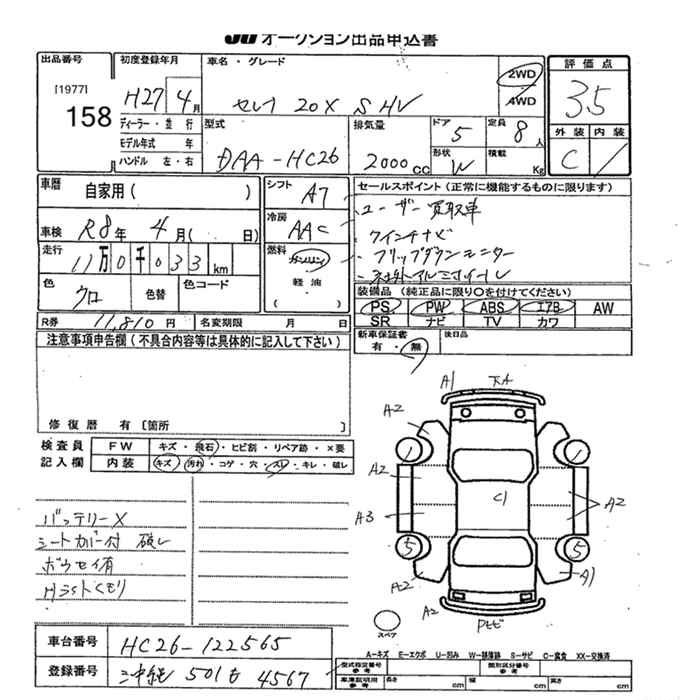 JU オークション出品申込書
出品番号
[1977]
158
初度登録年月
H27年 4月
ディーラー・並行
モデル年式 年
ハンドル 左・右
車名・グレード
セレナ 20X S HV
2WD
4WD
評価点
3.5
外装 内装
C
型式
DAA-HC26
排気量
2000cc
ドア
5
形状
W
定員
8人
積載
Kg
車暦
自家用( )
車検
R8年 4月( 日)
走行
11万0千033km
色
クロ
色替
色コード
シフト
A7
冷房
AAC
燃料
ガソリン
軽油
セールスポイント(正常に機能するものに限ります)
・ユーザー買取車
・7インチナビ
・フリップダウンモニター
・社外アルミホイール
装備品(純正品に限り○を付けてください)
PS PW ABS エアB AW
SR ナビ TV カワ
新車保証書
有・無
後日品
R券 11,810円 名変期限 月 日
注意事項申告欄(不具合内容等は具体的に記入して下さい)
修復歴 有[箇所 ]
検査員
記入欄
FW キズ・飛石・ヒビ割・リペア跡・×要
内装 キズ・汚れ・コゲ・穴・スレ・キレ・破レ
バッテリーX
シートカバー付 破レ
ボウセイ有
Hライトくもり
A1 下A
A2
A2
A3
A2
A2
C1
A2
A1
1
1
5
5
Pビビ
スペア
A-キズ E-エクボ U-凹み W-部落跡 S-サビ C-腐食 XX-交換済
車台番号
HC26-122565
登録番号
沖縄 501 4567
型式指定番号
参考
類別区分番号
参考
車庫証明用
参考
長さ cm 幅 cm 高さ cm